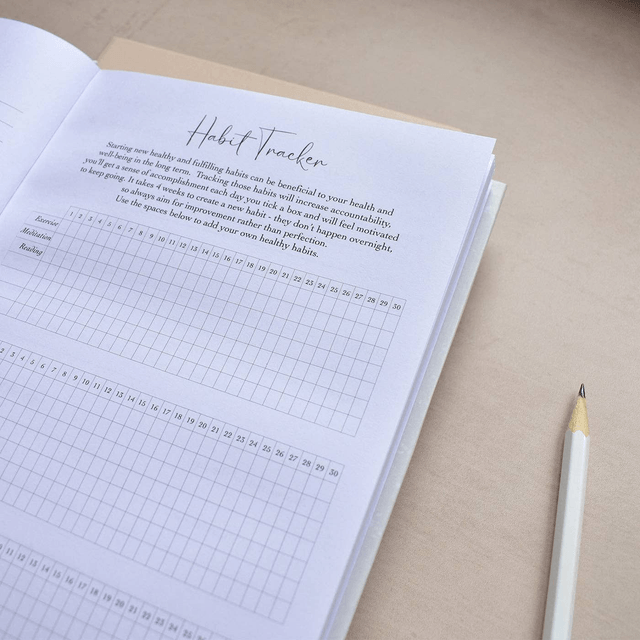 Habit Tracker
Starting new healthy and fulfilling habits can be beneficial to your health and
well-being in the long term. Tracking those habits will increase accountability,
you'll get a sense of accomplishment each day you tick a box and will feel motivated
to keep going. It takes 4 weeks to create a new habit - they don't happen overnight,
so always aim for improvement rather than perfection.
Use the spaces below to add your own healthy habits.
1 2 3 4 5 6 7 8 9 10 11 12 13 14 15 16 17 18 19 20 21 22 23 24 25 26 27 28 29 30
Exercise
Meditation
Reading
2 3 4 5 6 7 8 9 10 11 12 13 14 15 16 17 18 19 20 21 22 23 24 25 26 27 28 29 30
11 12 13 14 15 16 17 18 19 20 21 22